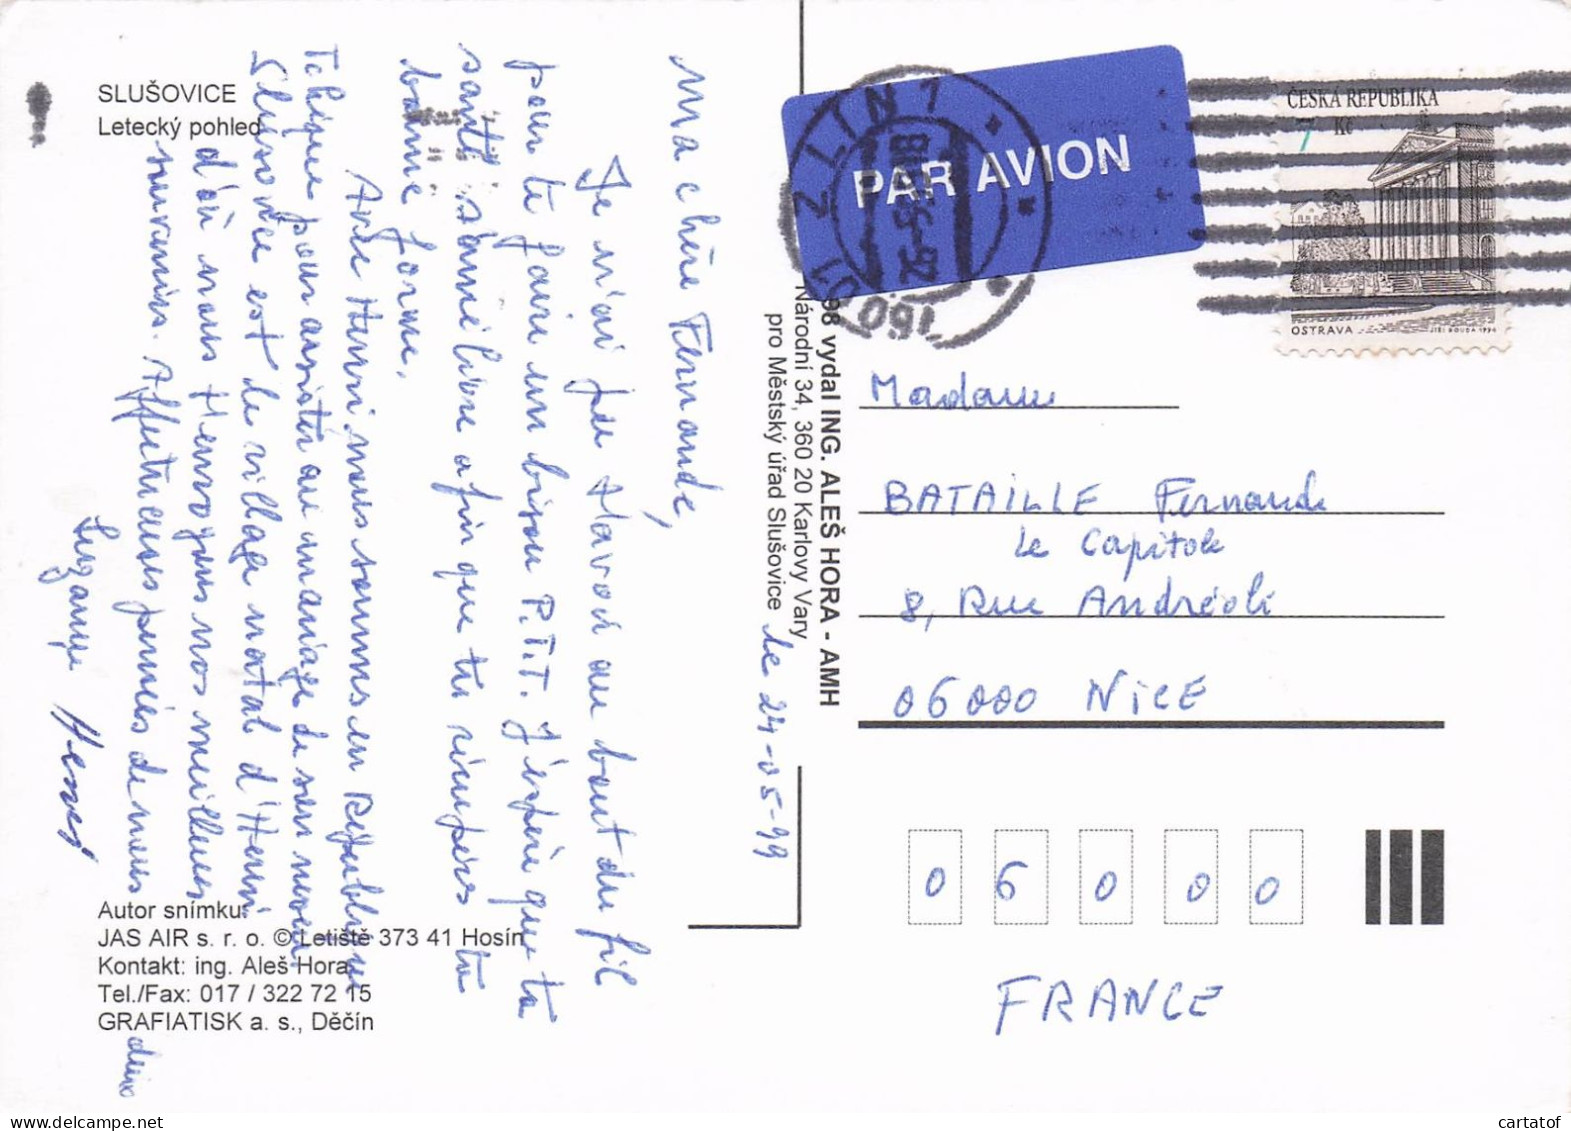 SLUŠOVICE
Letecký pohled
Ma chère Fernande,
Je n'ai pu t'avoir au bout du fil
pour te faire un bisou P.T.T. J'espère que ta
santé s'améliore afin que tu récupères ta
bonne forme.
Avec Henri nous sommes en République
Tchèque pour assister au mariage de son neveu.
Slusovice est le village natal d'Henri
d'où nous t'envoyons nos meilleurs
souvenirs. Affectueuses pensées de nous deux
Suzanne Henri
Autor snímku:
JAS AIR s. r. o. © Letiště 373 41 Hosín
Kontakt: ing. Aleš Hora
Tel./Fax: 017 / 322 72 15
GRAFIATISK a. s., Děčín
98 vydal ING. ALEŠ HORA - AMH
Národní 34, 360 20 Karlovy Vary
pro Městský úřad Slušovice
le 24-05-99
PAR AVION
ZLÍN 1
26.-5.99-18
760 01
ČESKÁ REPUBLIKA
7 Kč
OSTRAVA
JIŘÍ BOUDA 1994
Madame
BATAILLE Fernande
Le Capitole
8, Rue Andréoli
06000 NICE
0 6 0 0 0
FRANCE
cartatof